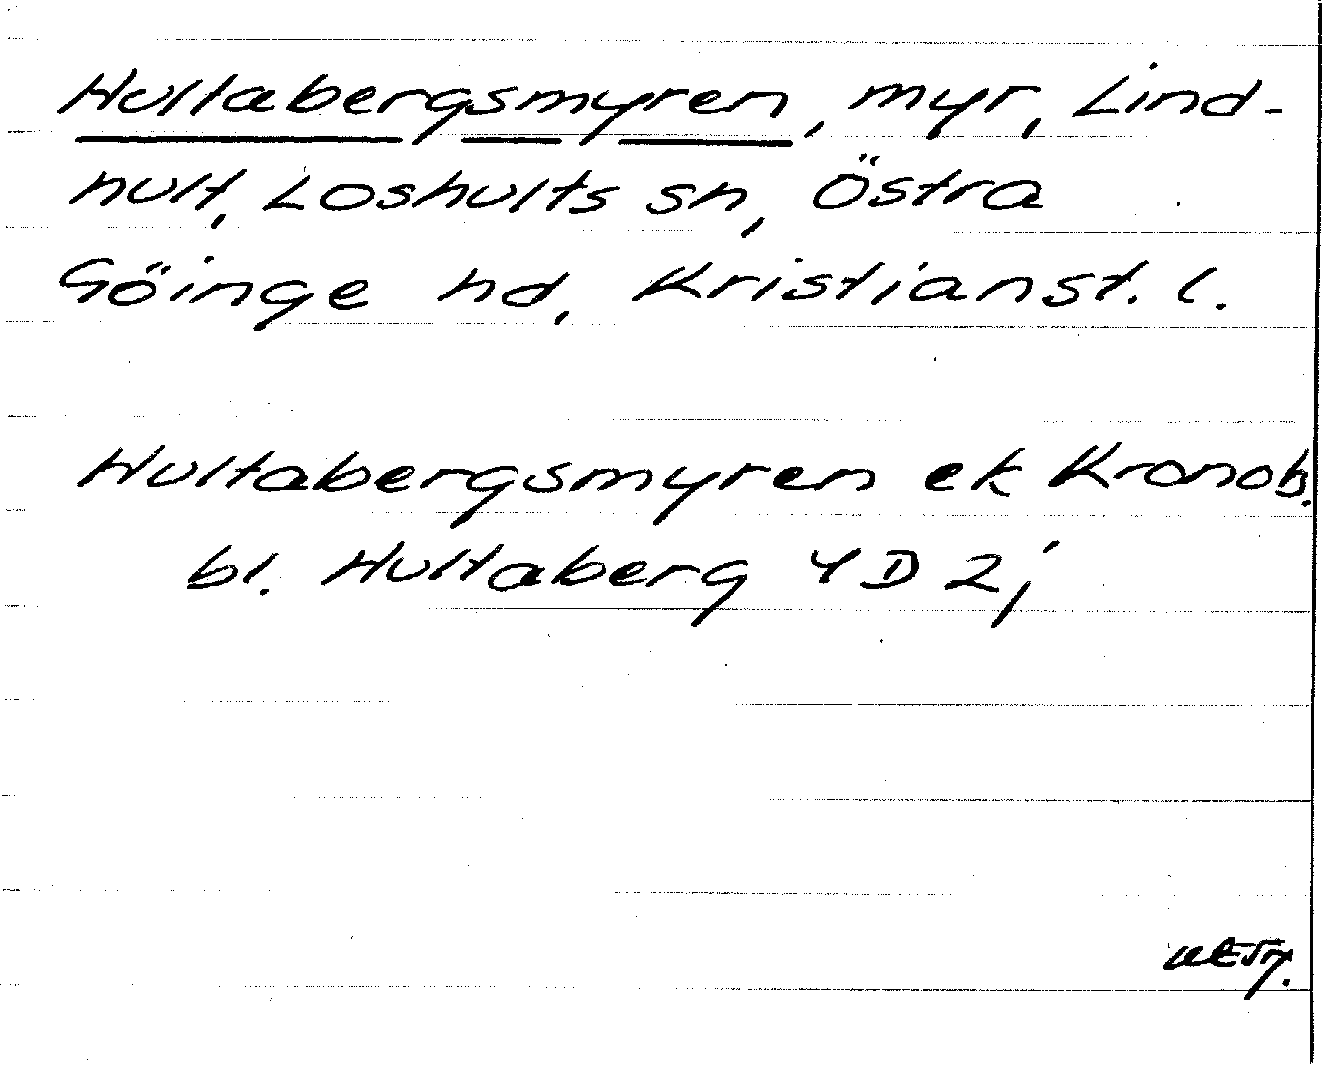 Hultabergsmyren, myr, Lind-
hult, Loshults sn, Östra
Göinge hd, Kristianst. l.
Hultabergsmyren ek Kronob.
bl. Hultaberg 4D2j